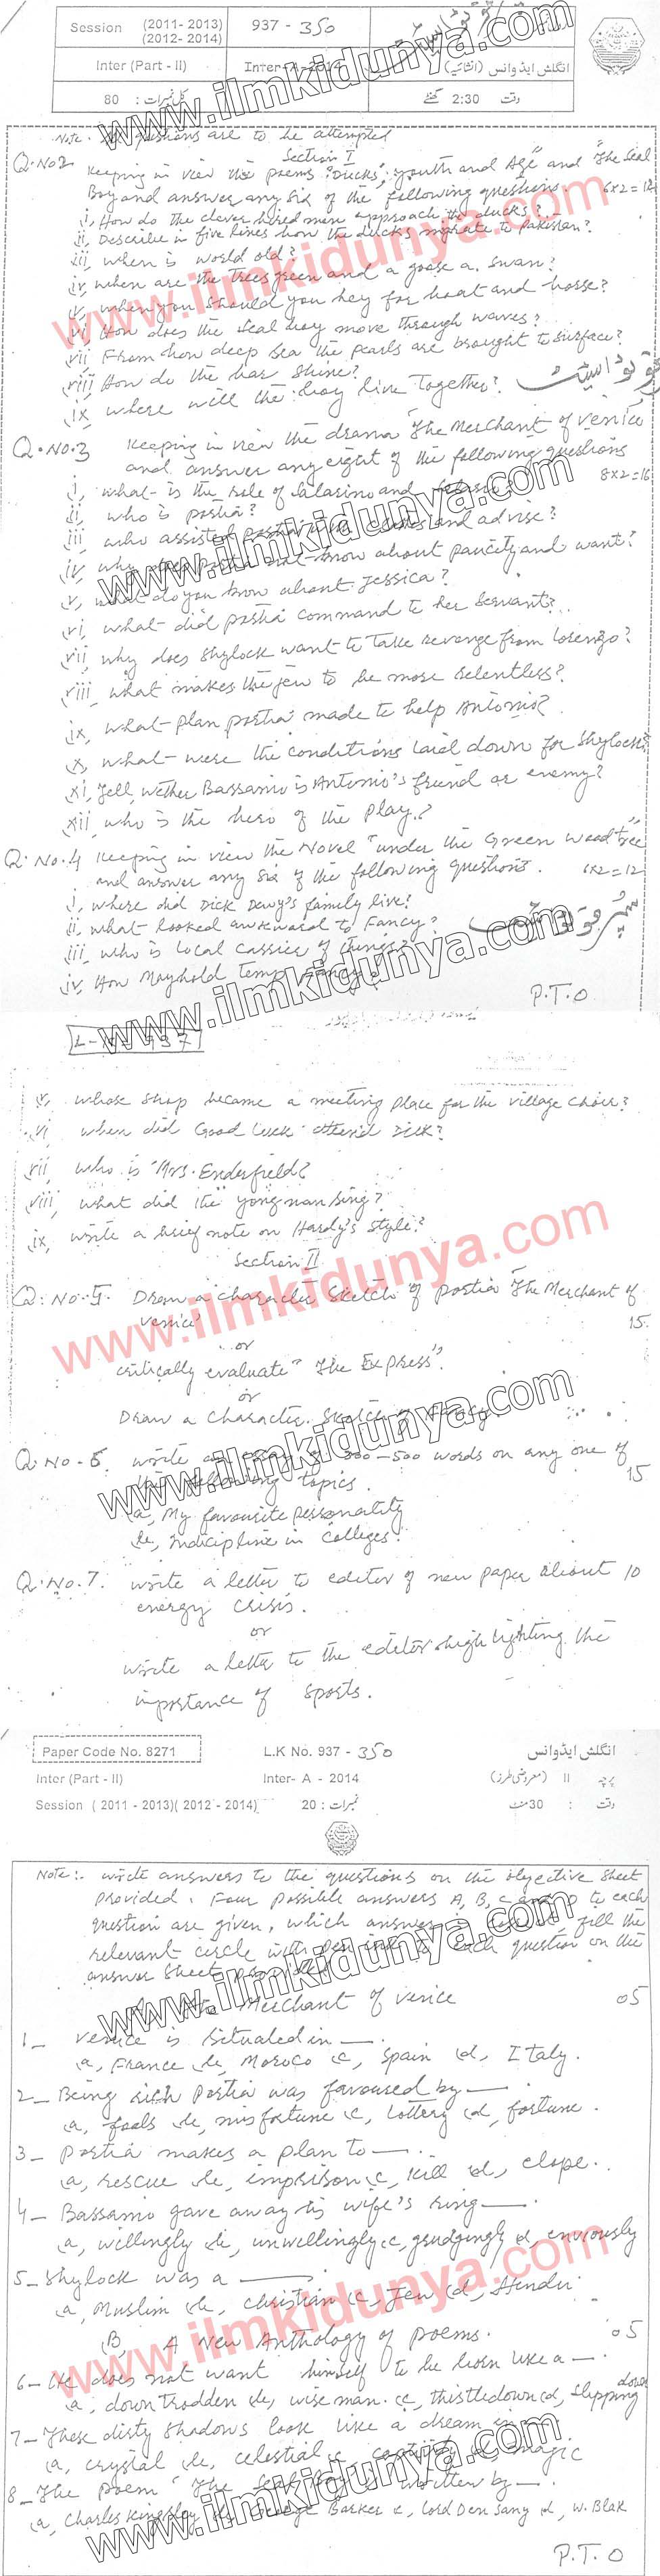 Session
(2011- 2013)
(2012- 2014)
937 - 350
Inter (Part - II)
Inter-A-2014
انگلش ایڈوانس (انشائیہ)
کل نمبرات : 80
وقت 2:30 گھنٹے
www.ilmkidunya.com
Note. questions are to be attempted
Section I
Q.No2 Keeping in view the poems "Ducks", "youth and Age" and "The Seal
Boy and answer any six of the following questions. 6x2=12
i, How do the clever hired men approach the ducks?
ii, Describe in five lines how the ducks migrate to Pakistan?
iii, when is world old?
iv, when are the trees green and a goose a swan?
v, when you should you hey for boat and horse?
vi, How does the Seal boy move through waves?
vii From how deep sea the pearls are brought to surface?
viii, How do the shine?
ix, where will the boy live Together?
Q.No.3 Keeping in view the drama "The Merchant of venice
and answer any eight of the following questions 8x2=16
i, what is the role of Salarino and
ii, who is portia?
iii, who assisted portia with and advise?
iv, why does portia not know about paucity and want?
v, what do you know about Jessica?
vi, what did portia command to her Servant?
vii, why does shylock want to Take revenge from Lorenzo?
viii, what makes the jew to be more relentless?
ix, what plan portia made to help Antonio?
x, what were the conditions laid down for Shylock?
xi, Tell, wether Bassanio is Antonio's friend or enemy?
xii, who is the hero of the Play.?
Q.No.4 Keeping in view the Novel "under the Green wood tree"
and answer any six of the following questions. 6x2=12
i, where did Dick Dewy's family live?
ii, what looked awkward to Fancy?
iii, who is local carrier of things?
iv, How Mayhold
P.T.O
L-K. 937
v, whose shop became a meeting place for the village choir?
vi, when did Good Luck attend Dick?
vii, who is "Mrs. Enderfield?
viii, what did the yong man sing?
ix, write a brief note on Hardy's style?
Section II
Q.No.5. Draw a character Sketch of portia "The Merchant of
venice" 15.
or
critically evaluate "The Express".
or
Draw a character. Sketch of Fancy.
Q.No-6. write an essay of 300-500 words on any one of
the following topics. 15
a, My favourite personality
b, Indicipline in Colleges.
Q.No.7. write a letter to editor of new paper about 10
energy crisis.
or
write a letter to the editor high lighting the
importance of sports.
Paper Code No. 8271
L.K No. 937 - 350
انگلش ایڈوانس
Inter (Part -II)
Inter- A - 2014
پرچہ II (معروضی طرز)
Session ( 2011 - 2013)( 2012 - 2014)
نمبرات : 20
وقت : 30 منٹ
Note:- write answers to the questions on the objective sheet
provided. Four possible answers A, B, C and D to each
question are given, which answer fill the
relevant circle with each question on the
answer sheet
Merchant of venice 05
1_ venice is situated in —.
a, France b, Moroco c, Spain d, Italy.
2_ Being rich Portia was favoured by —.
a, fools b, misfortune c, Lottery d, fortune.
3_ Portia makes a plan to —.
a, rescue b, imprison c, kill d, elope.
4_ Bassanio gave away his wife's ring —.
a, willingly b, unwillingly c, grudgingly d, enviously
5_ Shylock was a —.
a, Muslim b, christian c, Jew d, Hindu
B A New Anthology of poems. 05
6_ He does not want himself to be born like a —.
a, down trodden b, wise man. c, thistledown d, slipping down
7_ These dirty shadows look like a dream in
a, crystal b, celestial c, d, magic
8_ The poem "The Seal Boy" is written by —.
a, Charles Kingsley b, George Barker c, Lord Den Sany d, W. Blak
P.T.O